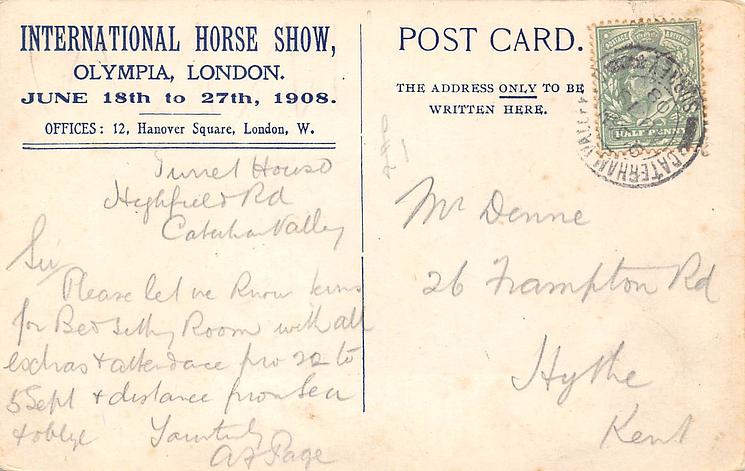 INTERNATIONAL HORSE SHOW,
OLYMPIA, LONDON.
JUNE 18th to 27th, 1908.
OFFICES: 12, Hanover Square, London, W.
Turret House
Highfield Rd
Caterham Valley
Sir
Please let me know terms
for Bed Sitting Room with all
extras & attendance from 22 to
5 Sept & distance from Sea
& oblige Yours truly
A F Page
POST CARD.
THE ADDRESS ONLY TO BE
WRITTEN HERE.
POSTAGE
HALF PENNY
CATERHAM VALLEY
Mr Denne
26 Frampton Rd
Hythe
Kent